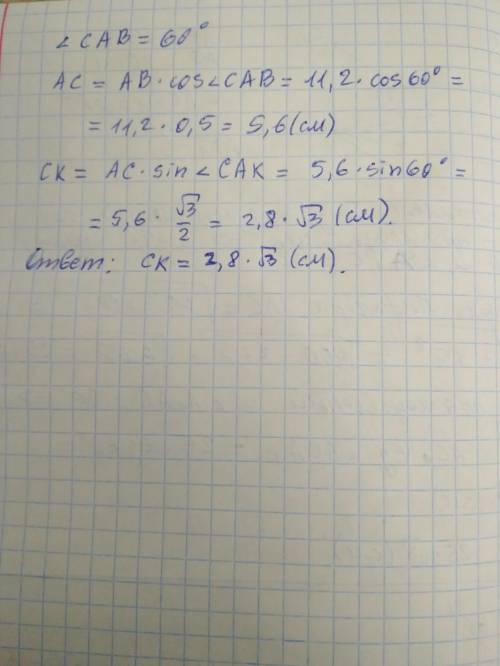 ∠CAB = 60°
AC = AB · cos∠CAB = 11,2 · cos60° =
= 11,2 · 0,5 = 5,6 (см)
CK = AC · sin∠CAK = 5,6 · sin60° =
= 5,6 · √3/2 = 2,8 · √3 (см).
Ответ: CK = 2,8 · √3 (см).